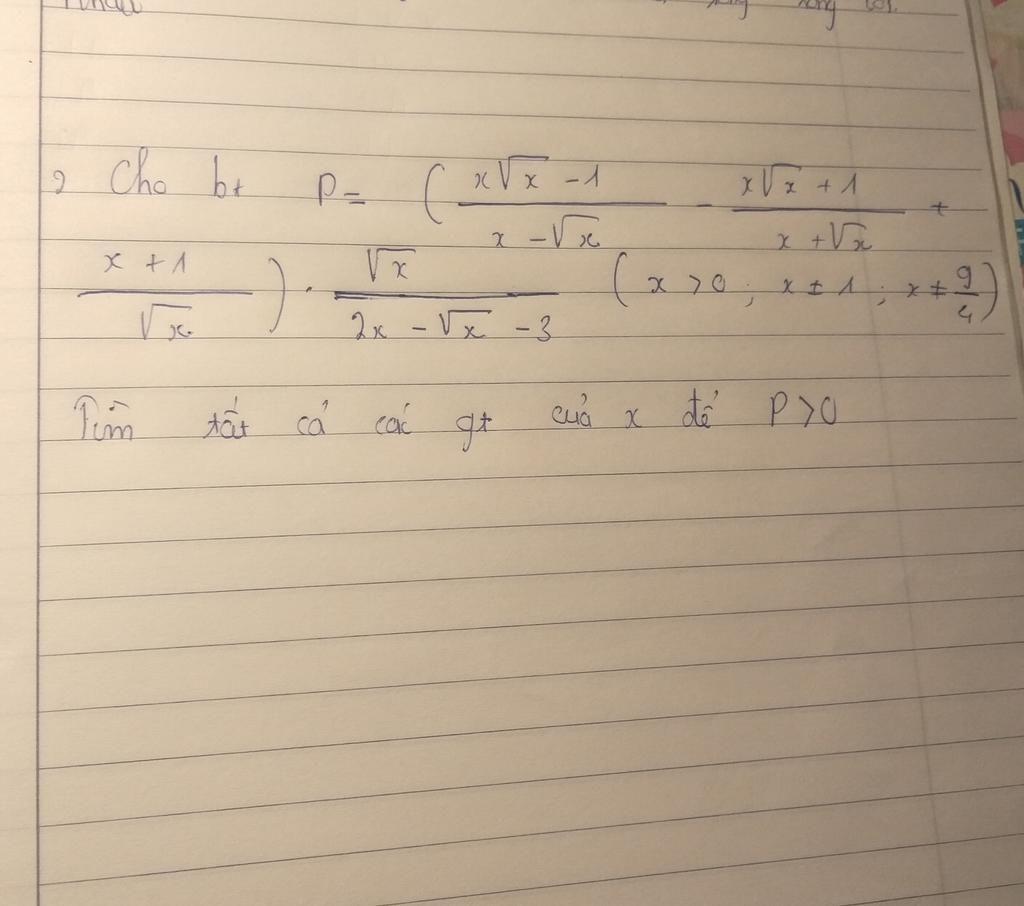 2 Cho bt P = ( x√x - 1 / x - √x - x√x + 1 / x + √x +
x + 1 / √x ) . √x / 2x - √x - 3 ( x > 0 ; x ≠ 1 ; x ≠ 9/4 )
Tìm tất cả các gt của x để P > 0